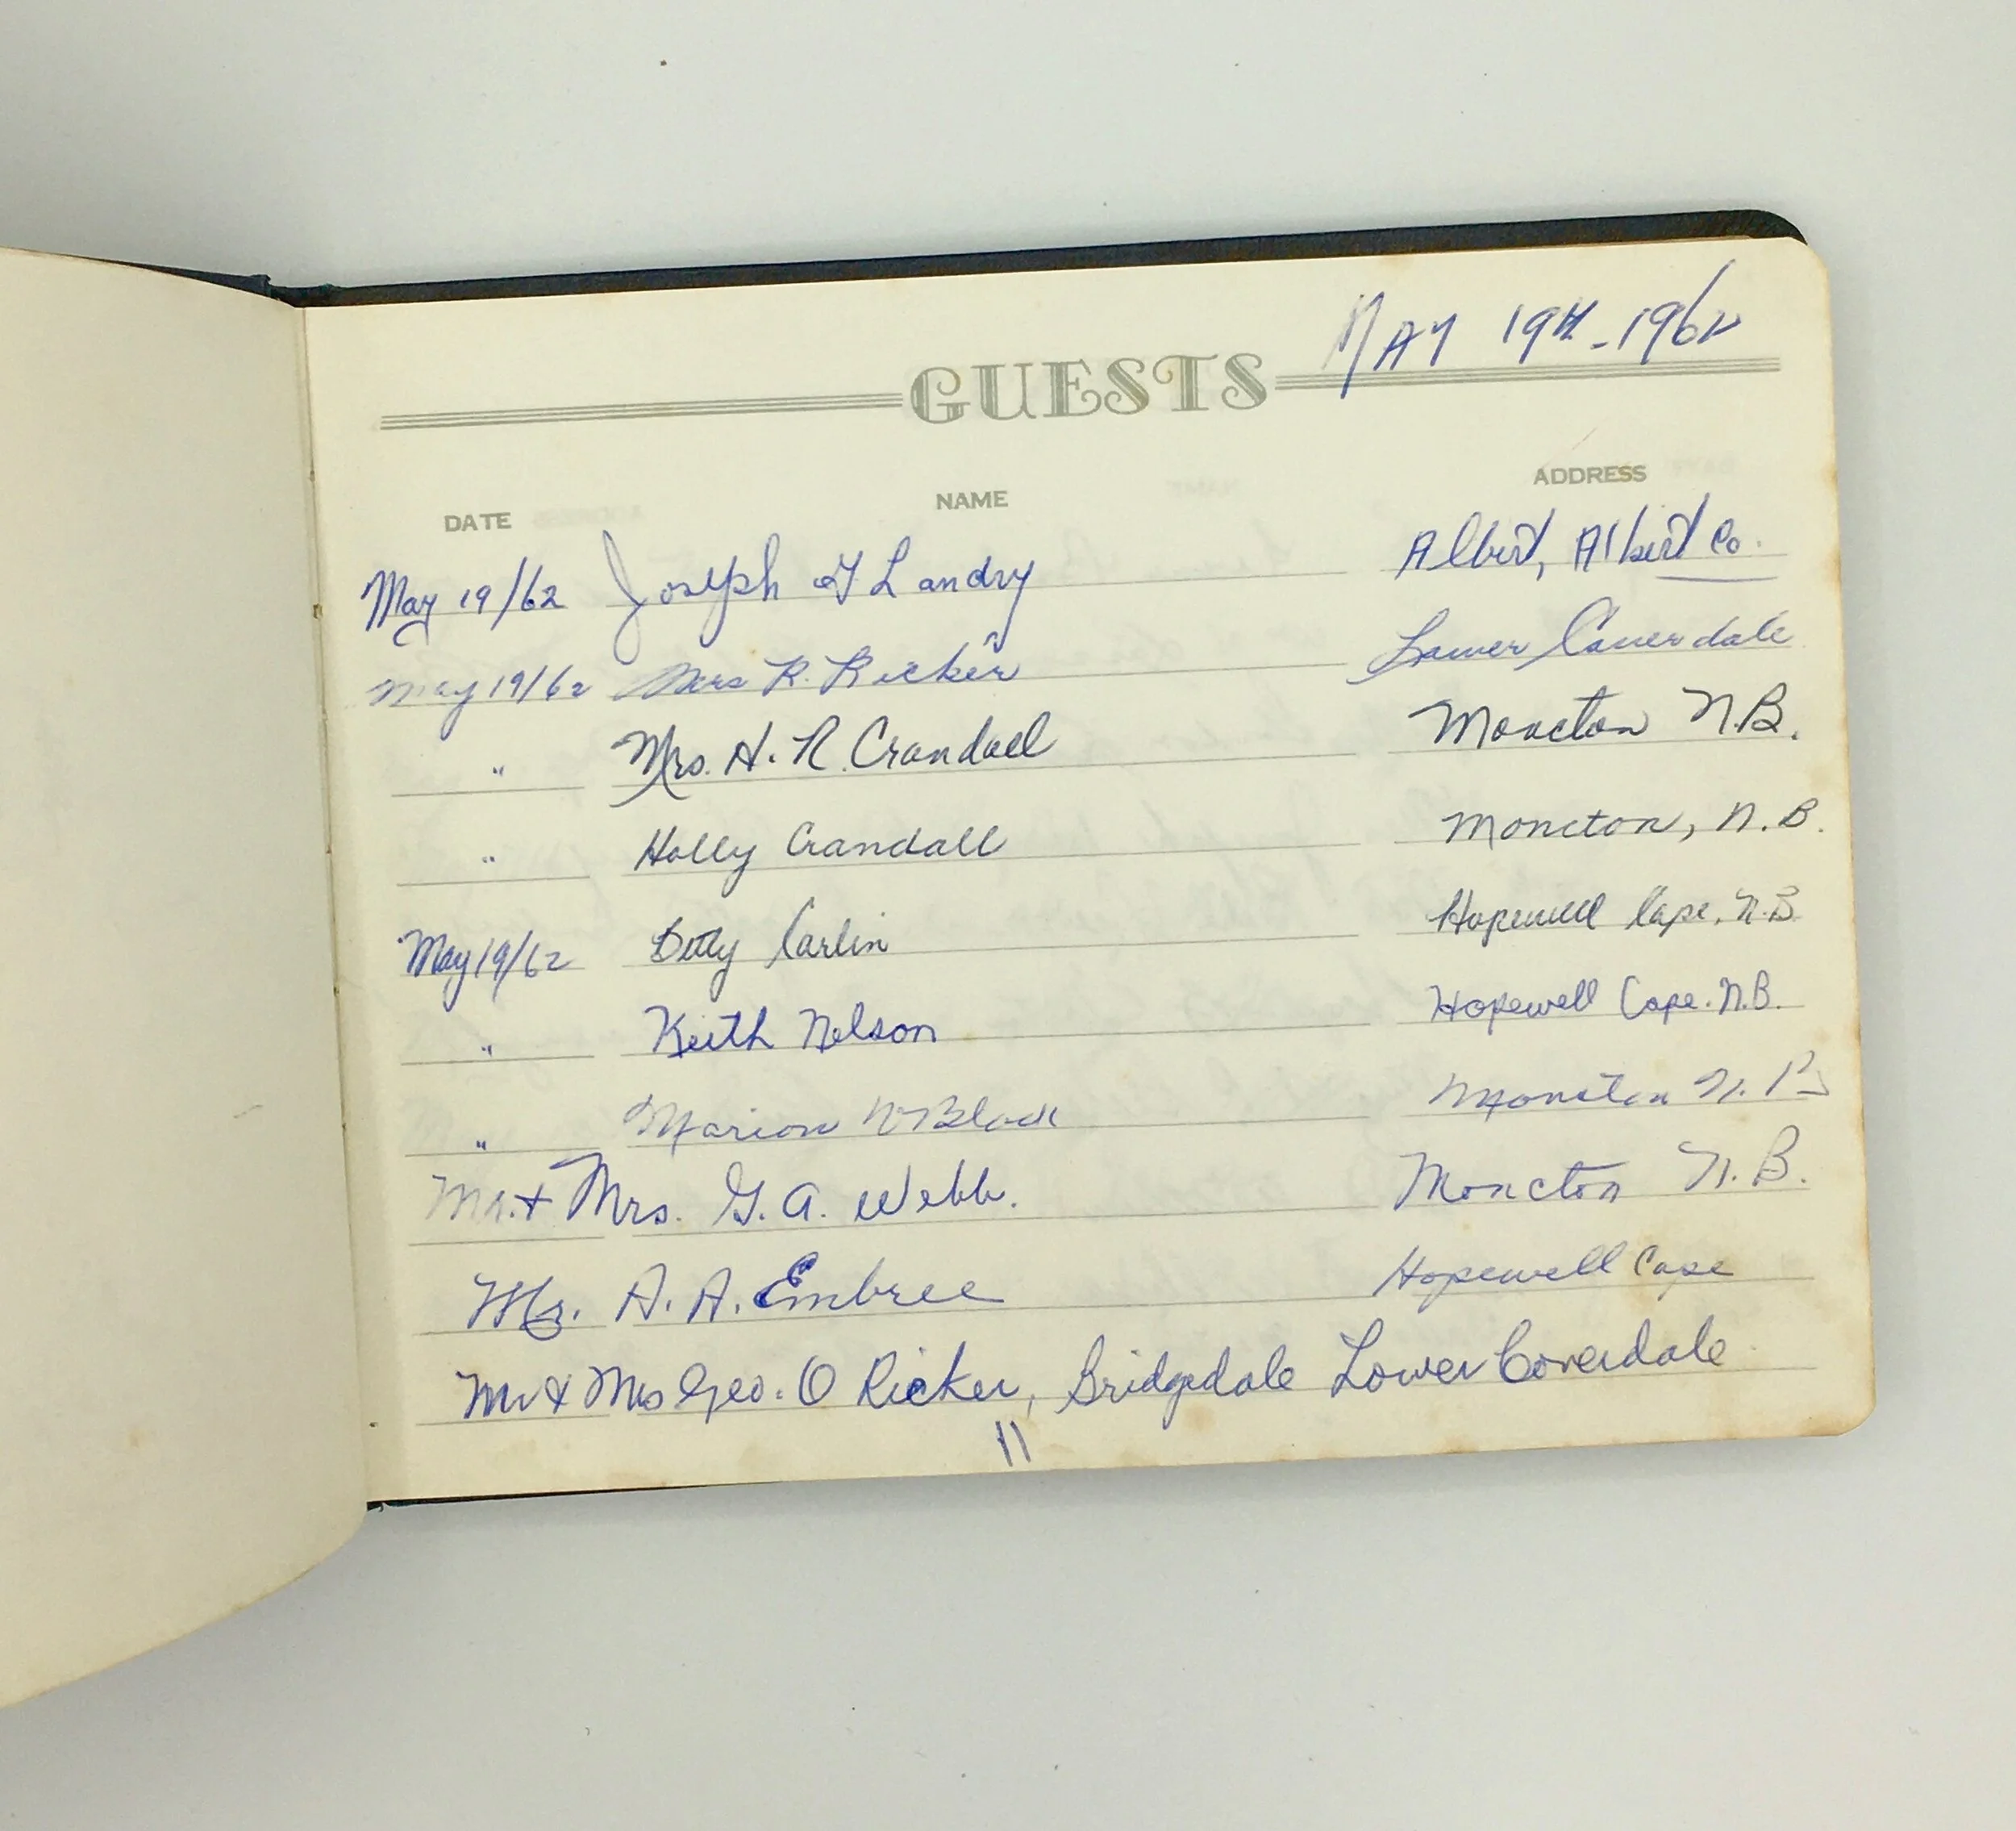 MAY 19th - 1962
GUESTS
DATE NAME ADDRESS
May 19/62 Joseph Landry Albert, Albert Co.
May 19/62 Mrs R. Ricker Lower Coverdale
" Mrs. H. R. Crandall Moncton N.B.
" Holly Crandall Moncton, N.B.
May 19/62 Betty Carlin Hopewell Cape, N.B.
" Keith Nelson Hopewell Cape. N.B.
" Marion Moncton N.B
Mr. + Mrs. G. A. Webb. Moncton N.B.
A. A. Embree Hopewell Cape
Mr & Mrs Geo. O Ricker, Bridgedale Lower Coverdale
11